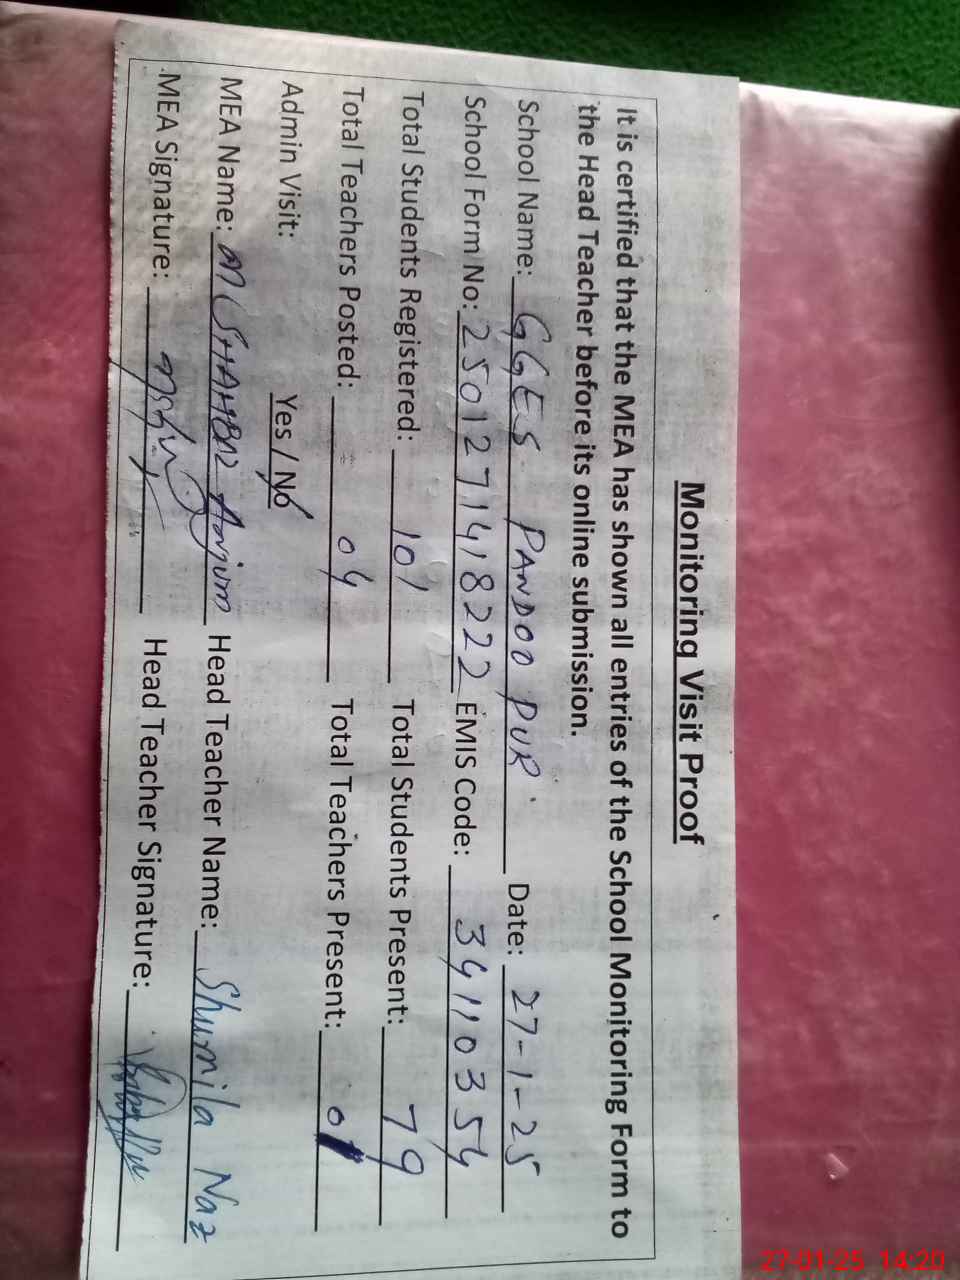 Monitoring Visit Proof
It is certified that the MEA has shown all entries of the School Monitoring Form to
the Head Teacher before its online submission.
School Name: GGES PANDOO PUR Date: 27-1-25
School Form No: 250127141822 2 EMIS Code: 34110354
Total Students Registered: 101 Total Students Present: 79
Total Teachers Posted: 04 Total Teachers Present:
Admin Visit: Yes / No
MEA Name: M Anjum Head Teacher Name: Shumila Naz
MEA Signature: Head Teacher Signature:
27-01-25 14:20